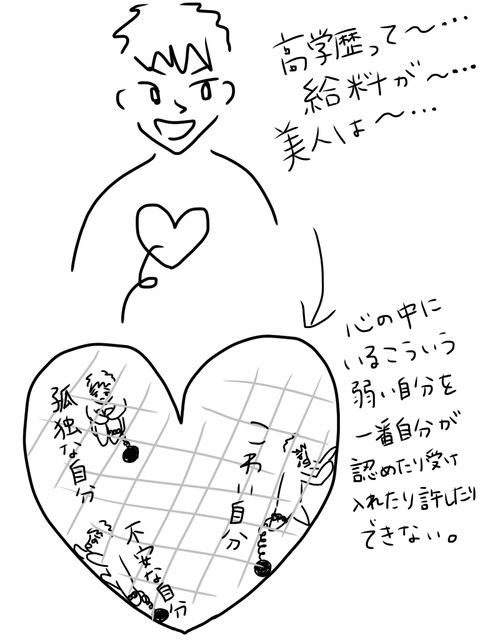 高学歴って〜…
給料が〜…
美人は〜…
心の中に
いるこういう
弱い自分を
一番自分が
認めたり受け
入れたり許したり
できない。
孤独な自分
こわい自分
不安な自分